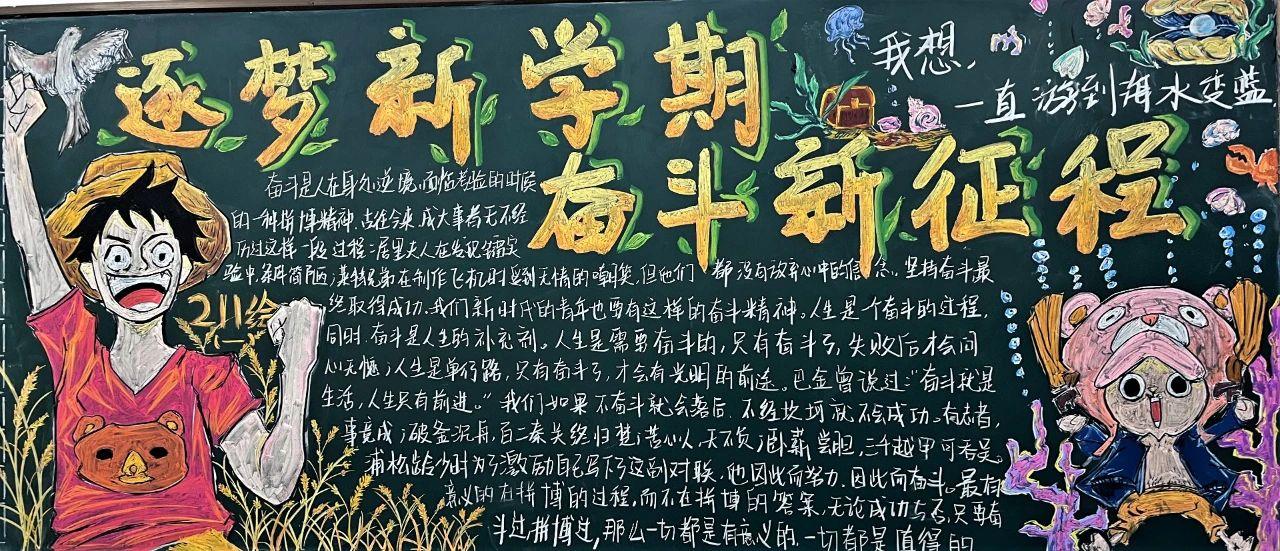 逐梦新学期
我想，
一直游到海水变蓝
奋斗新征程
奋斗是人在身处逆境,面临考验的时候
的一种拼博精神.古往今来,成大事者无不经
历过这样一段过程:居里夫人在发现镭实
验中,条件简陋;莱特兄弟在制作飞机时受到无情的嘲笑,但他们都没有放弃心中的信念.坚持奋斗最
终取得成功.我们新时代的青年也要有这样的奋斗精神。人生是个奋斗的过程,
同时,奋斗是人生的补充剂。人生是需要奋斗的,只有奋斗了,失败后才会问
心无愧;人生是单行路,只有奋斗了,才会有光明的前途。巴金曾说过:“奋斗就是
生活,人生只有前进。”我们如果不奋斗就会落后.不经坎坷就不会成功。有志者,
事竟成;破釜沉舟,百二秦关终归楚;苦心人,天不负;卧薪尝胆,三千越甲可吞吴。
蒲松龄少时为了激励自己写下了这副对联,他因此而努力,因此而奋斗。最有
意义的在拼博的过程,而不在拼博的答案,无论成功与否,只要奋
斗过拼搏过,那么一切都是有意义的.一切都是值得的
211绘